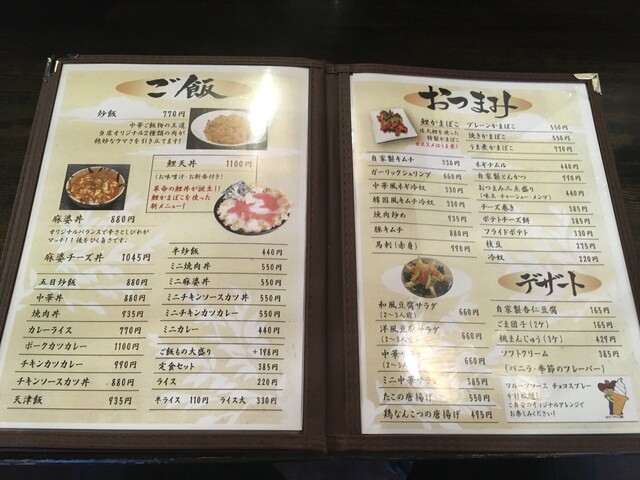 ご飯
炒飯 770円
中華ご飯物の王道
当店オリジナル2種類の肉が
絶妙なウマさを引き立てます!
鯉天丼 1100円
(お味噌汁・お新香付き)
革命の鯉丼が誕生!!
鯉かまぼこを使った
新メニュー!
麻婆丼 880円
オリジナルバランスで辛さとしびれが
マッチ!!後をひく旨さです。
麻婆チーズ丼 1045円
五目炒飯 880円
中華丼 880円
焼肉丼 935円
カレーライス 770円
ポークカツカレー 1100円
チキンカツカレー 990円
チキンソースカツ丼 880円
天津飯 935円
半炒飯 440円
ミニ焼肉丼 550円
ミニ麻婆丼 550円
ミニチキンソースカツ丼 550円
ミニチキンカツカレー 550円
ミニカレー 440円
ご飯もの大盛り +198円
定食セット 385円
ライス 220円
半ライス 110円 ライス大 330円
おつまみ
鯉かまぼこ
佐久鯉を使った
特製かまぼこ
プレーンかまぼこ 550円
焼きかまぼこ 550円
うま煮かまぼこ 770円
自家製キムチ 330円
ガーリックシュリンプ 660円
中華風ネギ冷奴 330円
韓国風キムチ冷奴 330円
焼肉炒め 935円
豚キムチ 880円
馬刺(赤身) 990円
ネギナムル 440円
自家製とんかつ 990円
おつまみ三点盛り
(味玉・チャーシュー・メンマ)
チーズ巻き 385円
ポテトチーズ餅 385円
フライドポテト 330円
枝豆 275円
冷奴 220円
和風豆腐サラダ 660円
(2〜3人前)
洋風豆腐サラダ 660円
(2〜3人前)
中華サラダ 660円
ミニ中華サラダ 385円
たこの唐揚げ 550円
鶏なんこつの唐揚げ 495円
デザート
自家製杏仁豆腐 165円
ごま団子(2ケ) 165円
桃まんじゅう(3ケ) 429円
ソフトクリーム 385円
(バニラ・季節のフレーバー)
フルーツソース チョコスプレー
かけ放題!
ご自分のオリジナルアレンジで
お楽しみください!